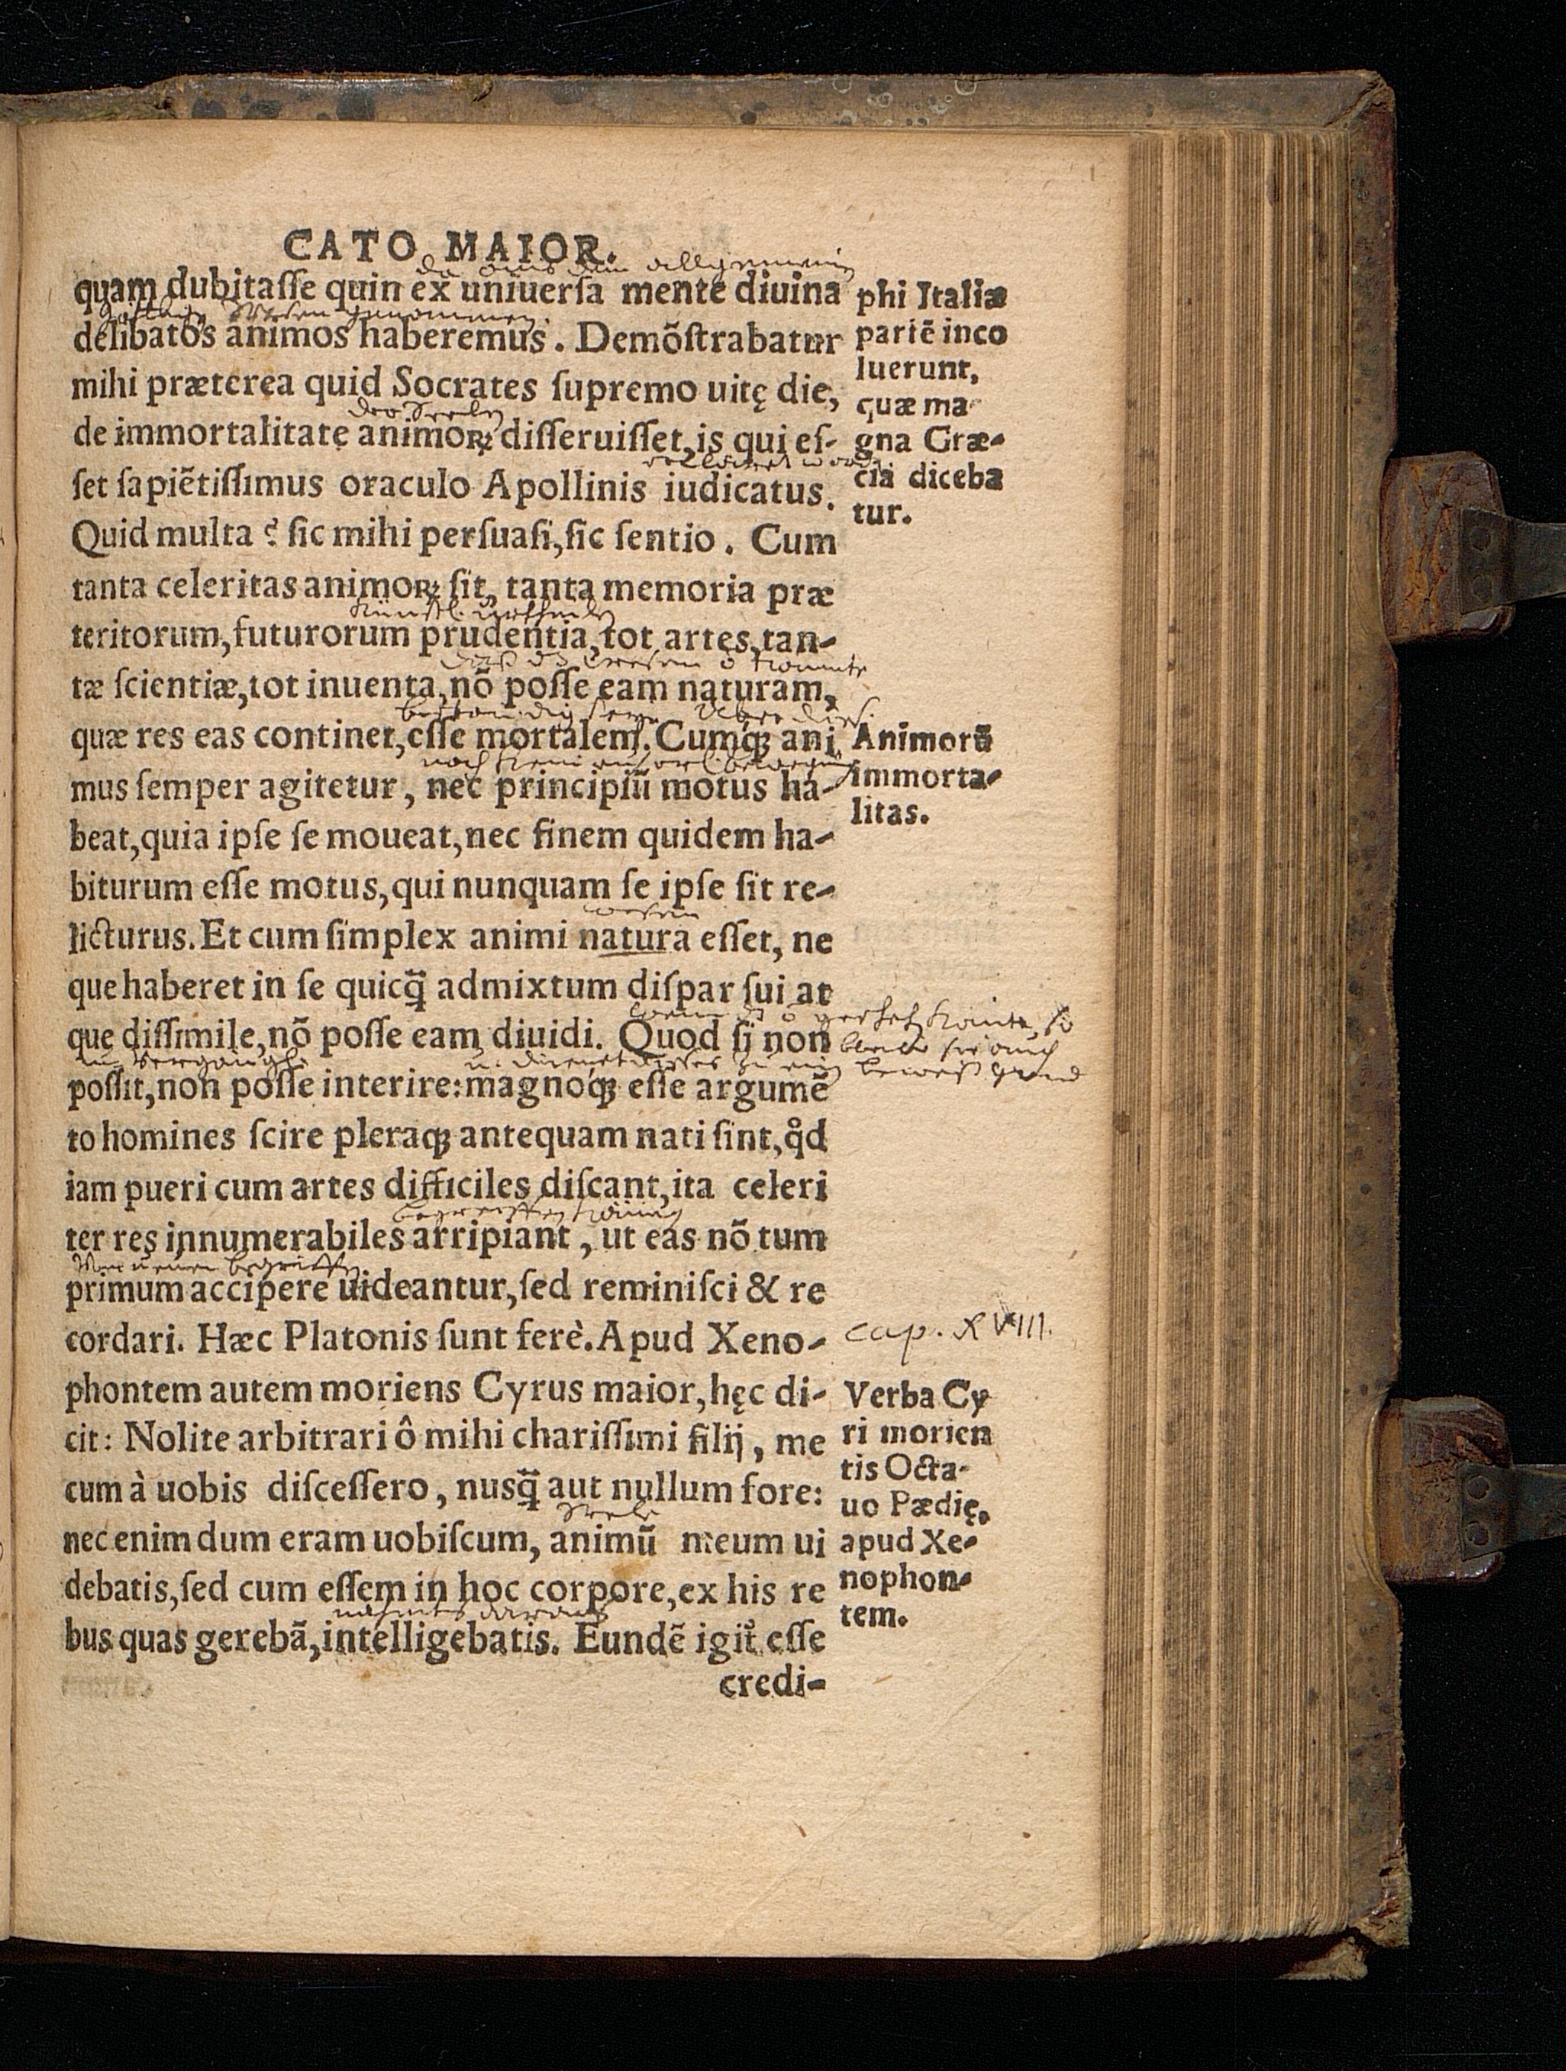 CATO MAIOR.
quam dubitaſſe quin ex uniuerſa mente diuina
delibatos animos haberemus. Demõſtrabatur
mihi præterea quid Socrates ſupremo uitę die,
de immortalitate animoꝝ diſſeruiſſet, is qui eſ-
ſet ſapiẽtiſſimus oraculo Apollinis iudicatus.
Quid multa? ſic mihi perſuaſi, ſic ſentio. Cum
tanta celeritas animoꝝ ſit, tanta memoria præ
teritorum, futurorum prudentia, tot artes, tan-
tæ ſcientiæ, tot inuenta, nõ poſſe eam naturam,
quæ res eas continet, eſſe mortalem. Cumqꝫ ani
mus ſemper agitetur, nec principiũ motus ha-
beat, quia ipſe ſe moueat, nec finem quidem ha-
biturum eſſe motus, qui nunquam ſe ipſe ſit re-
licturus. Et cum ſimplex animi natura eſſet, ne
que haberet in ſe quicq̃ admixtum diſpar ſui at
que diſſimile, nõ poſſe eam diuidi. Quod ſi non
poſſit, non poſſe interire: magnoqꝫ eſſe argumẽ
to homines ſcire pleraqꝫ antequam nati ſint, qd̊
iam pueri cum artes difficiles diſcant, ita celeri
ter res innumerabiles arripiant, ut eas nõ tum
primum accipere uideantur, ſed reminiſci & re
cordari. Hæc Platonis ſunt ferè. Apud Xeno-
phontem autem moriens Cyrus maior, hęc di-
cit: Nolite arbitrari ô mihi chariſſimi filij, me
cum à uobis diſceſſero, nusq̃ aut nullum fore:
nec enim dum eram uobiſcum, animũ meum ui
debatis, ſed cum eſſem in hoc corpore, ex his re
bus quas gerebã, intelligebatis. Eundẽ igit᷑ eſſe
credi-
phi Italiæ
pariẽ inco
luerunt,
quæ ma
gna Græ-
cia diceba
tur.
Animorũ
immorta-
litas.
cap. XVIII.
Verba Cy
ri morien
tis Octa-
uo Pædię,
apud Xe-
nophon-
tem.